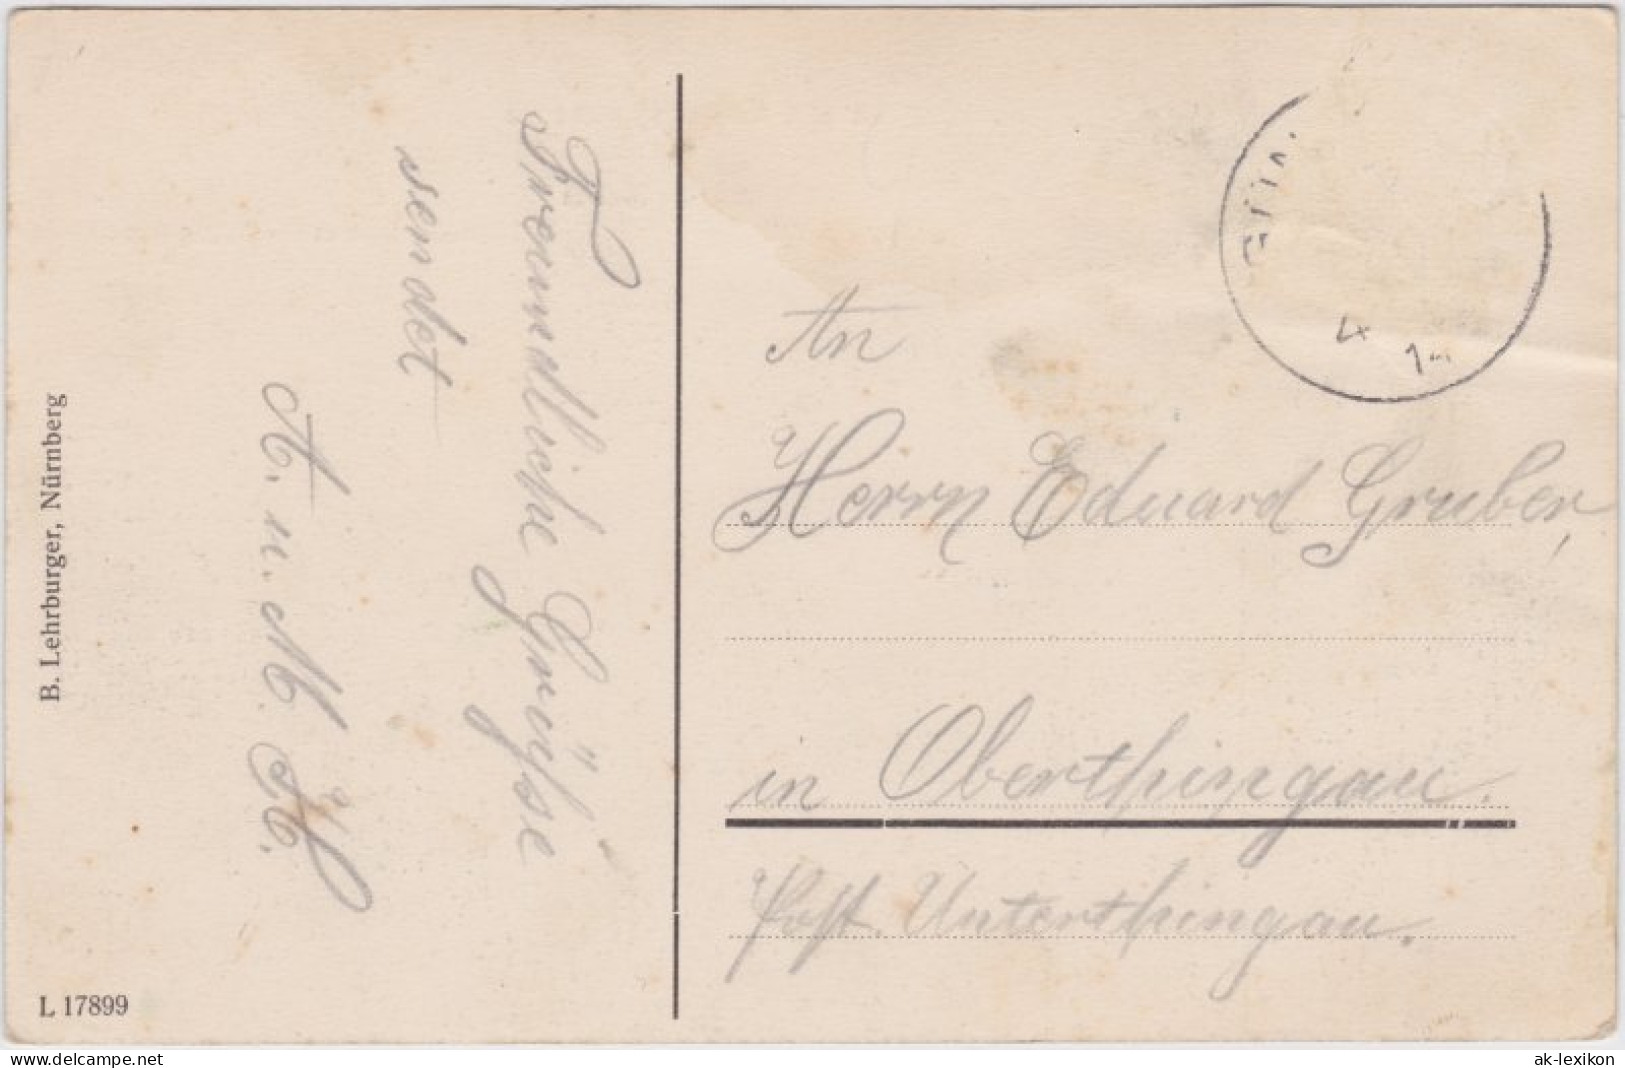 Freundliche Grüsse
sendet
A. u. M. H.
B. Lehrburger, Nürnberg
L 17899
An
Herrn Eduard Gruber,
in Oberthingau.
Post. Unterthingau.
www.delcampe.net
ak-lexikon